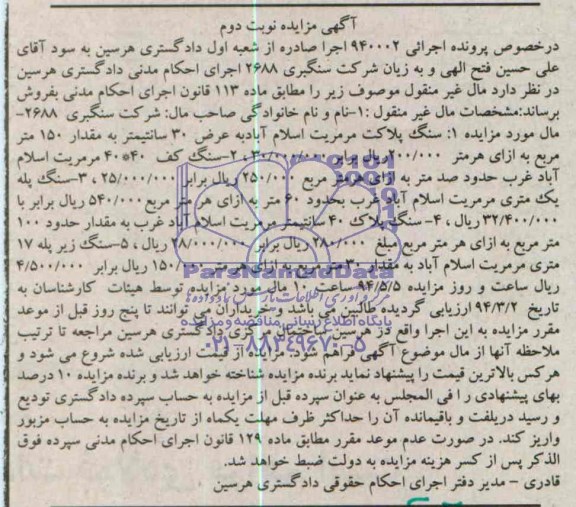 آگهی مزایده نوبت دوم
درخصوص پرونده اجرائی ۹۴۰۰۰۲ اجرا صادره از شعبه اول دادگستری هرسین به سود آقای
علی حسین فتح الهی و به زیان شرکت سنگبری ۲۶۸۸ اجرای احکام مدنی دادگستری هرسین
در نظر دارد مال غیر منقول موصوف زیر را مطابق ماده ۱۱۳ قانون اجرای احکام مدنی بفروش
برساند:مشخصات مال غیر منقول :۱-نام و نام خانوادگی صاحب مال: شرکت سنگبری ۲۶۸۸-
مال مورد مزایده ۱: سنگ پلاکت مرمریت اسلام آبادبه عرض ۳۰ سانتیمتر به مقدار ۱۵۰ متر
مربع به ازای هرمتر ۲۰۰/۰۰۰ریال برابر ۳۰/۰۰۰/۰۰۰ ، ۲-سنگ کف ۴۰*۴۰ مرمریت اسلام
آباد غرب حدود صد متر به ازای هرمتر مربع ۲۵۰/۰۰۰ ریال برابر ۲۵/۰۰۰/۰۰۰ ، ۳-سنگ پله
یک متری مرمریت اسلام آباد غرب بحدود ۶۰ متر به ازای هر متر مربع۵۴۰/۰۰۰ ریال برابر با
۳۲/۴۰۰/۰۰۰ ریال ، ۴- سنگ پلاک ۴۰ سانتیمتر مرمریت اسلام آباد غرب به مقدار حدود ۱۰۰
متر مربع به ازای هر متر مربع مبلغ ۲۸۰/۰۰۰ ریال برابر ۲۸/۰۰۰/۰۰۰ ریال ، ۵-سنگ زیر پله ۱۷
متری مرمریت اسلام آباد به مقدار ۳۰ متر مربع به ازای هر متر ۱۵۰/۰۰۰ ریال برابر ۴/۵۰۰/۰۰۰
ParsNamadData
ریال ساعت و روز مزایده ۹۴/۵/۵ ساعت ۱۰ مال مورد مزایده توسط هیئات کارشناسان به
مرکز فرآوری اطلاعات پارس نماد داده ها
تاریخ ۹۴/۳/۲ ارزیابی گردیده طالبین می باشد و خریداران می توانند تا پنج روز قبل از موعد
پایگاه اطلاع رسانی مناقصه و مزایده
مقرر مزایده به این اجرا واقع در هرسین ساختمان مرکزی دادگستری هرسین مراجعه تا ترتیب
۰۲۱-۸۸۳۴۹۶۷۰-۵
ملاحظه آنها از مال موضوع آگهی فراهم شود، مزایده از قیمت ارزیابی شده شروع می شود و
هرکس بالاترین قیمت را پیشنهاد نماید برنده مزایده شناخته خواهد شد و برنده مزایده ۱۰ درصد
بهای پیشنهادی را فی المجلس به عنوان سپرده قبل از مزایده به حساب سپرده دادگستری تودیع
و رسید دریلفت و باقیمانده آن را حداکثر ظرف مهلت یکماه از تاریخ مزایده به حساب مزبور
واریز کند. در صورت عدم موعد مقرر مطابق ماده ۱۲۹ قانون اجرای احکام مدنی سپرده فوق
الذکر پس از کسر هزینه مزایده به دولت ضبط خواهد شد.
قادری - مدیر دفتر اجرای احکام حقوقی دادگستری هرسین